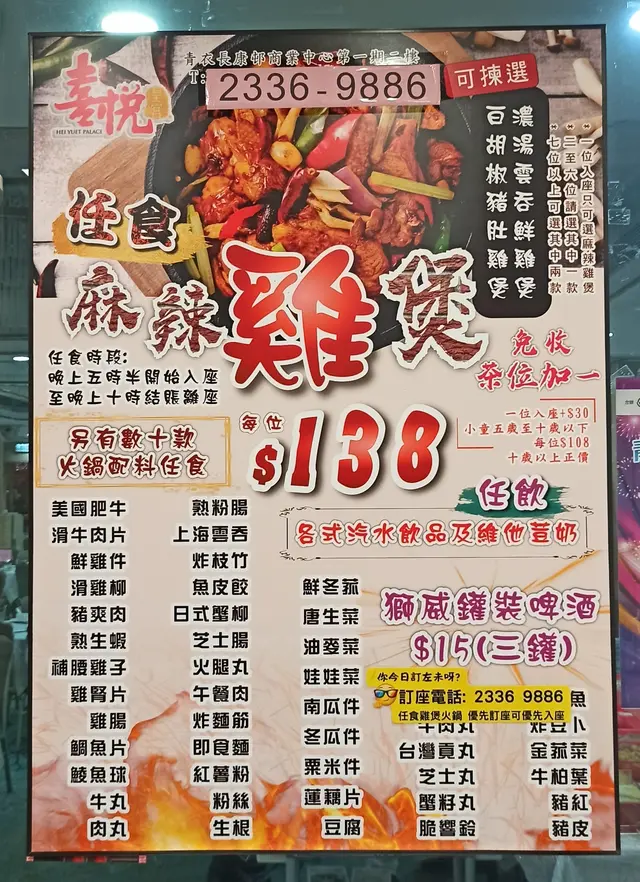 喜悅
HEI YUET PALACE
青衣長康邨商業中心第一期二樓
T:
2336-9886
可揀選
濃湯雲吞鮮雞煲
百胡椒豬肚雞煲
*一位入座只可選麻辣雞煲
*二至六位請選其中一款
*七位以上可選其中兩款
任食
麻辣雞煲
任食時段:
晚上五時半開始入座
至晚上十時結賬離座
免收
茶位加一
每位
$138
一位入座+$30
小童五歲至十歲以下
每位$108
十歲以上正價
另有數十款
火鍋配料任食
任飲
各式汽水飲品及維他荳奶
獅威鑵裝啤酒
$15(三鑵)
你今日訂左未呀?
訂座電話: 2336 9886
任食雞煲火鍋 優先訂座可優先入座
美國肥牛
滑牛肉片
鮮雞件
滑雞柳
豬爽肉
熟生蝦
補腰雞子
雞腎片
雞腸
鯛魚片
鯪魚球
牛丸
肉丸
熟粉腸
上海雲吞
炸枝竹
魚皮餃
日式蟹柳
芝士腸
火腿丸
午餐肉
炸麵筋
即食麵
紅薯粉
粉絲
生根
鮮冬菰
唐生菜
油麥菜
娃娃菜
南瓜件
冬瓜件
粟米件
蓮藕片
豆腐
牛肉丸
台灣貢丸
芝士丸
蟹籽丸
脆響鈴
魚
炸豆卜
金菰菜
牛柏葉
豬紅
豬皮